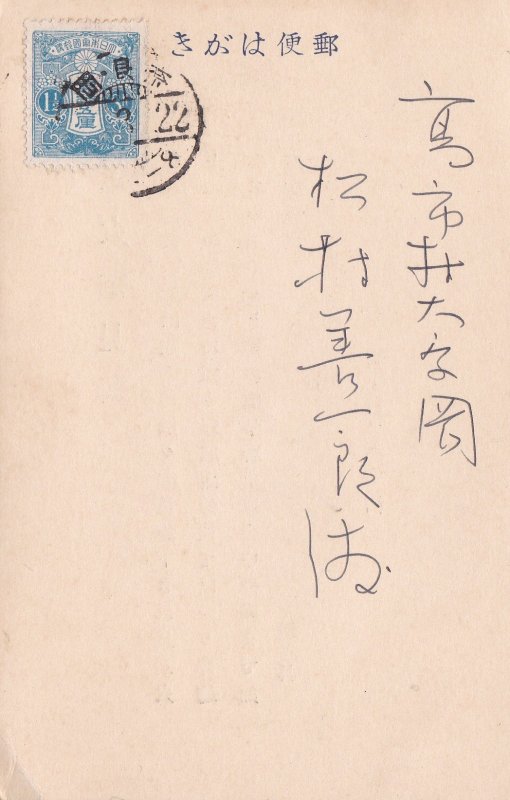 郵便はがき
高市村大字岡
松村善一郎様
大日本帝國郵便
1½
22